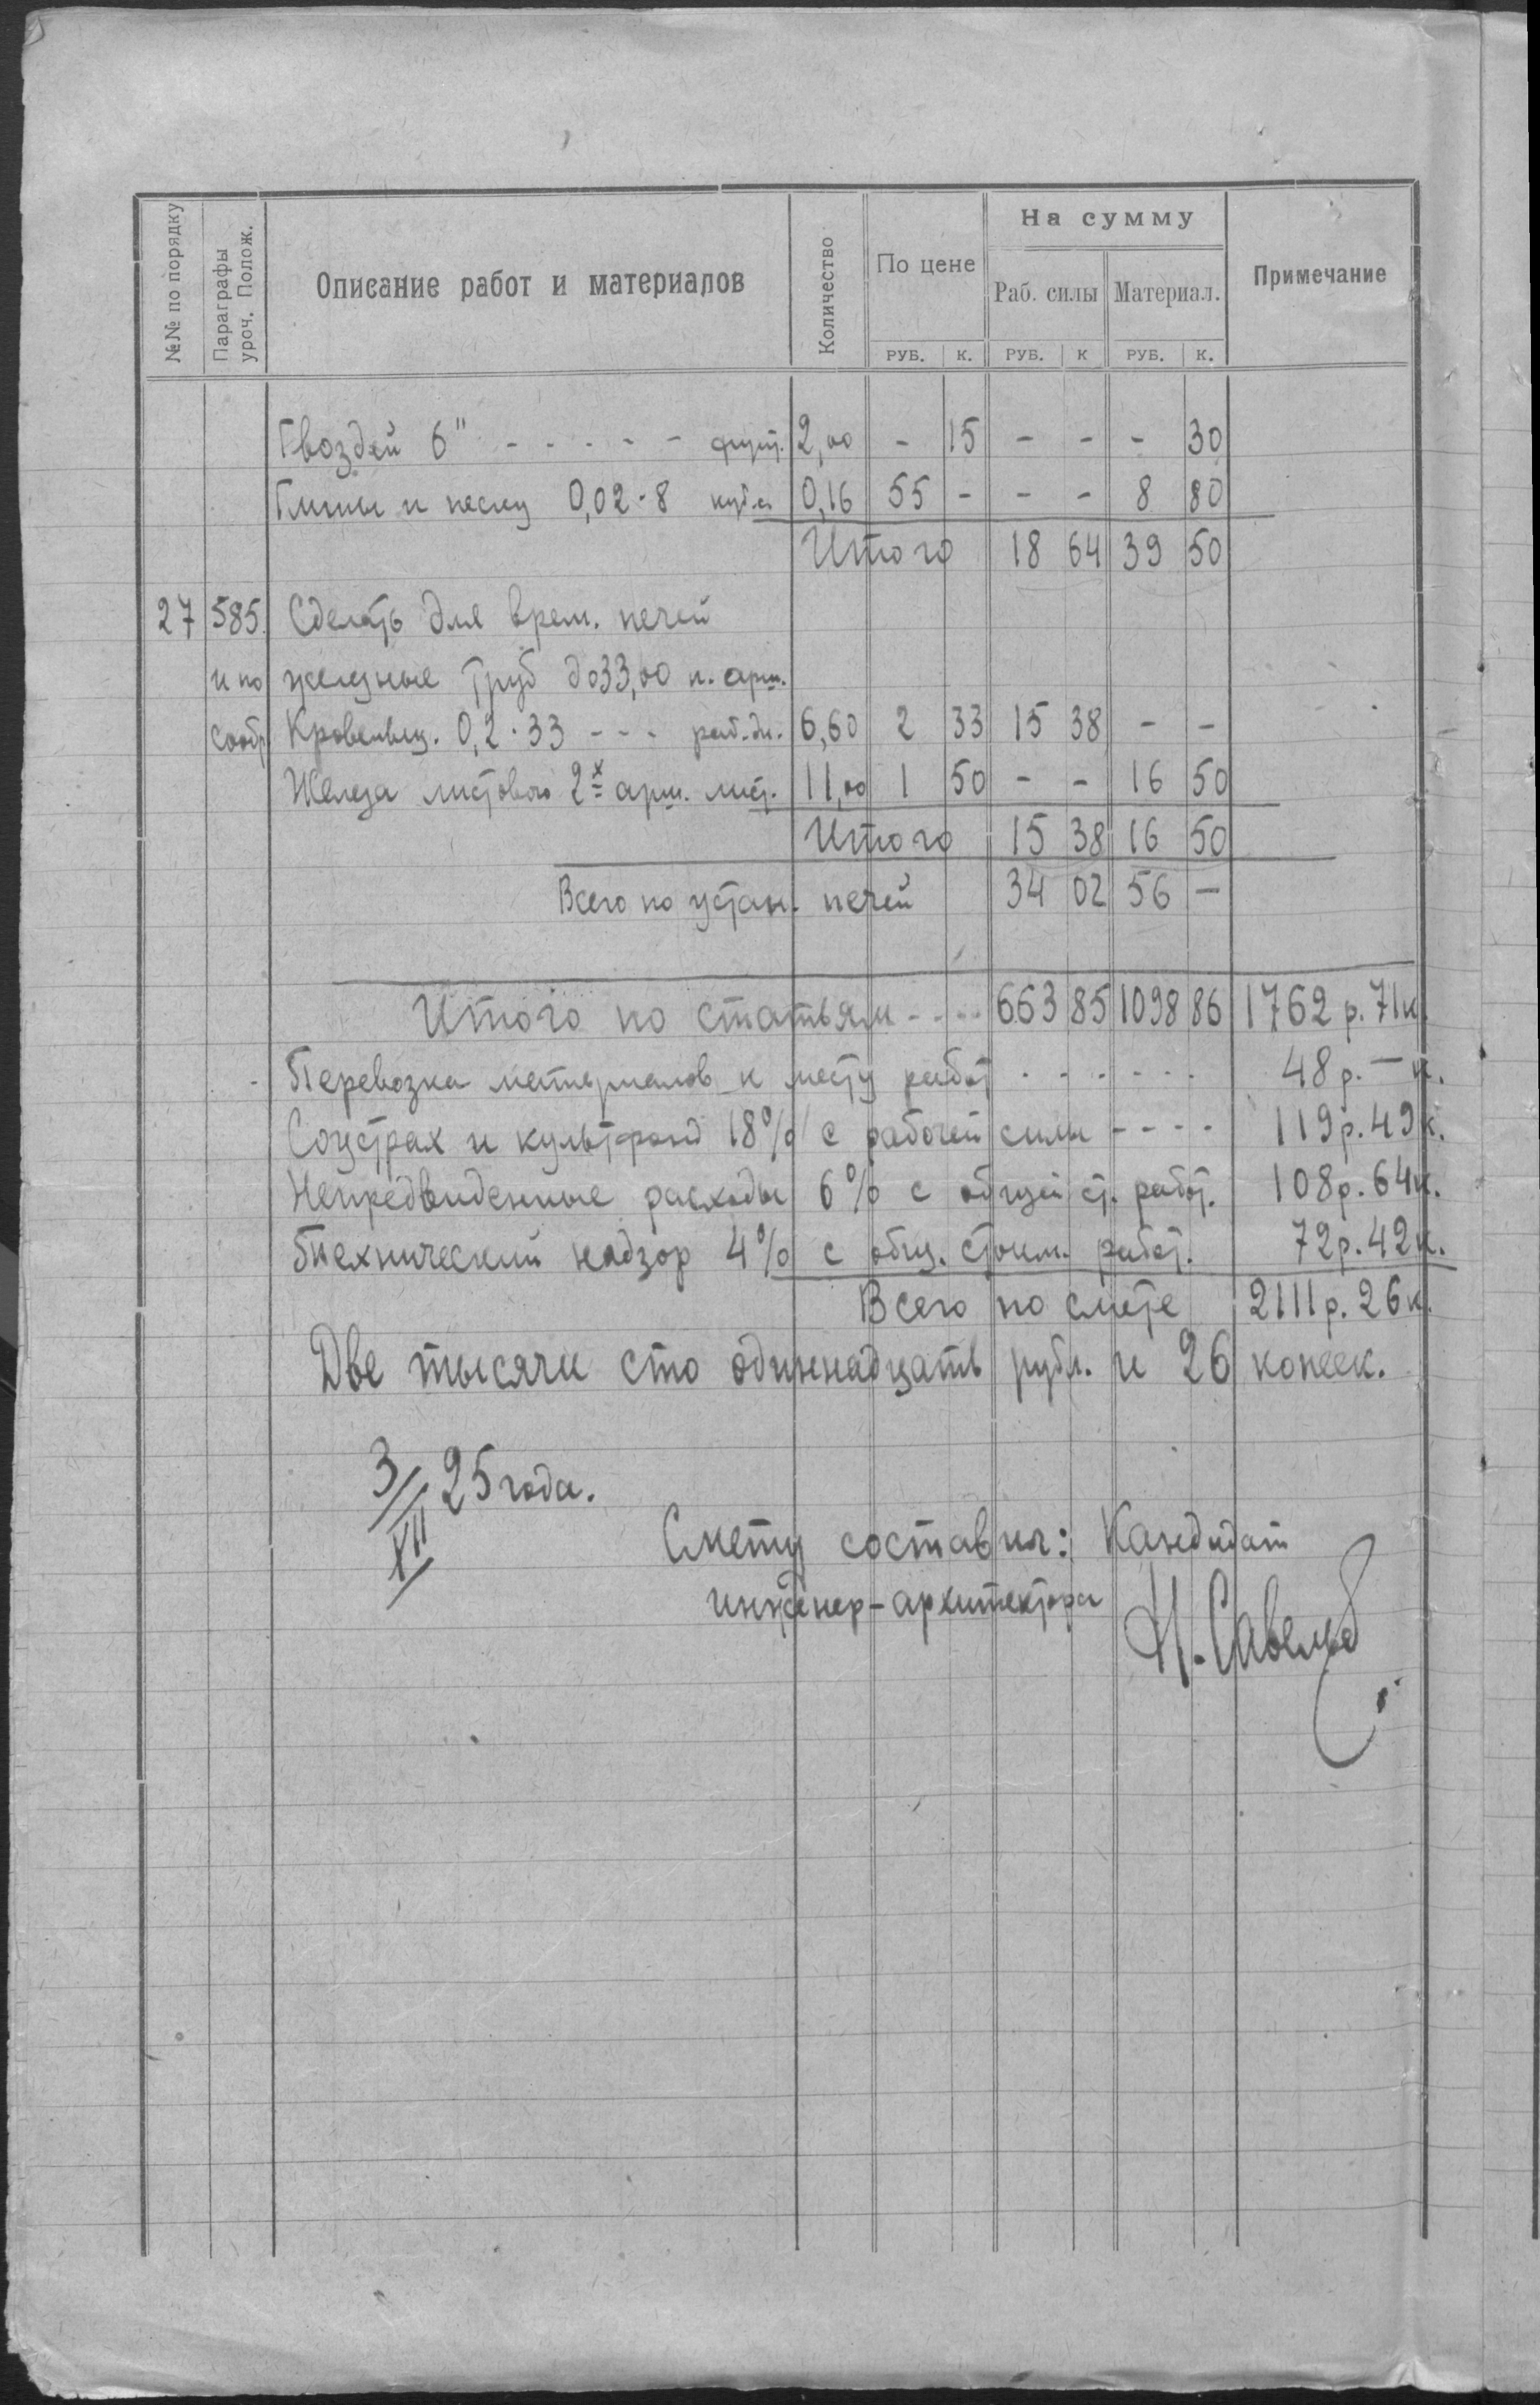 №№ по порядку
Параграфы уроч. Полож.
Описание работ и материалов
Количество
По цене
На сумму
Раб. силы
Материал.
Примечание
РУБ. К. РУБ. К РУБ. К.
Гвоздей 6" - - - - - фунт. 2,00 - 15 - - - 30
Глины и песку 0,02·8 куб.с 0,16 55 - - - 8 80
Итого 18 64 39 50
27 585. Сделать для врем. печей
и по железные труб до 33,00 п. арш.
сообр Кровельщ. 0,2·33 - - - раб.дн. 6,60 2 33 15 38 - -
Железа листового 2х арш. лист. 11,00 1 50 - - 16 50
Итого 15 38 16 50
Всего по устан. печей 34 02 56 -
Итого по статьям - - - - 663 85 1098 86 1762 р. 71 к.
Перевозка материалов к месту работ - - - - - - 48 р. - к.
Соцстрах и культфонд 18% с рабочей силы - - - - 119 р. 49 к.
Непредвиденные расходы 6% с общей ст. работ. 108 р. 64 к.
Технический надзор 4% с общ. стоим. работ. 72 р. 42 к.
Всего по смете 2111 р. 26 к.
Две тысячи сто одиннадцать рубл. и 26 копеек.
3/XII 25 года.
Смету составил: Кандидат
инженер-архитектора
Н. Савельев